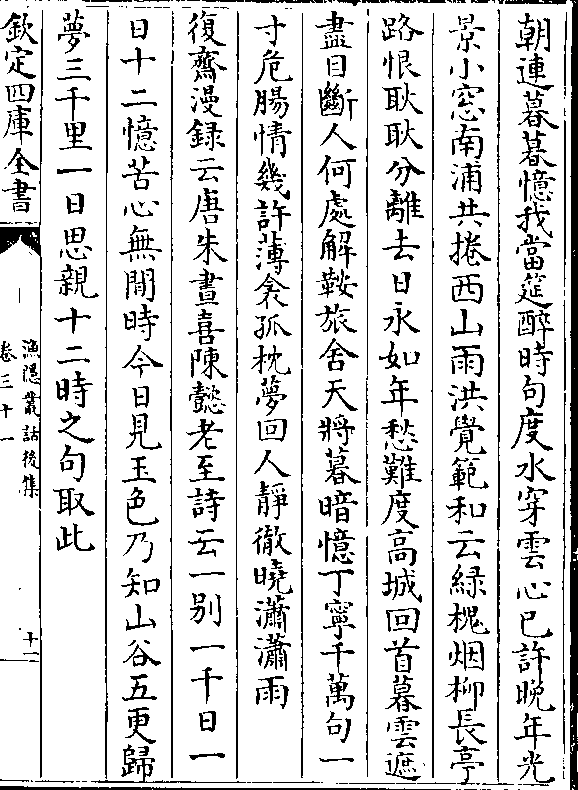 朝連暮暮憶我當筵醉時句度水穿雲心已許晚年光
景小窓南浦共捲西山雨洪覺範和云緑槐烟柳長亭
路恨耿耿分離去日永如年愁難度髙城回首暮雲遮
盡目斷人何處解鞍旅舍天將暮暗憶丁寧千萬句一
寸危腸情幾許薄衾孤枕夢回人靜徹曉瀟瀟雨
復齋漫録云唐朱晝喜陳懿老至詩云一别一千日一
日十二憶苦心無閒時今日見玉色乃知山谷五更歸
夢三千里一日思親十二時之句取此
欽定四庫全書
漁隱叢話後集
卷三十一
十一